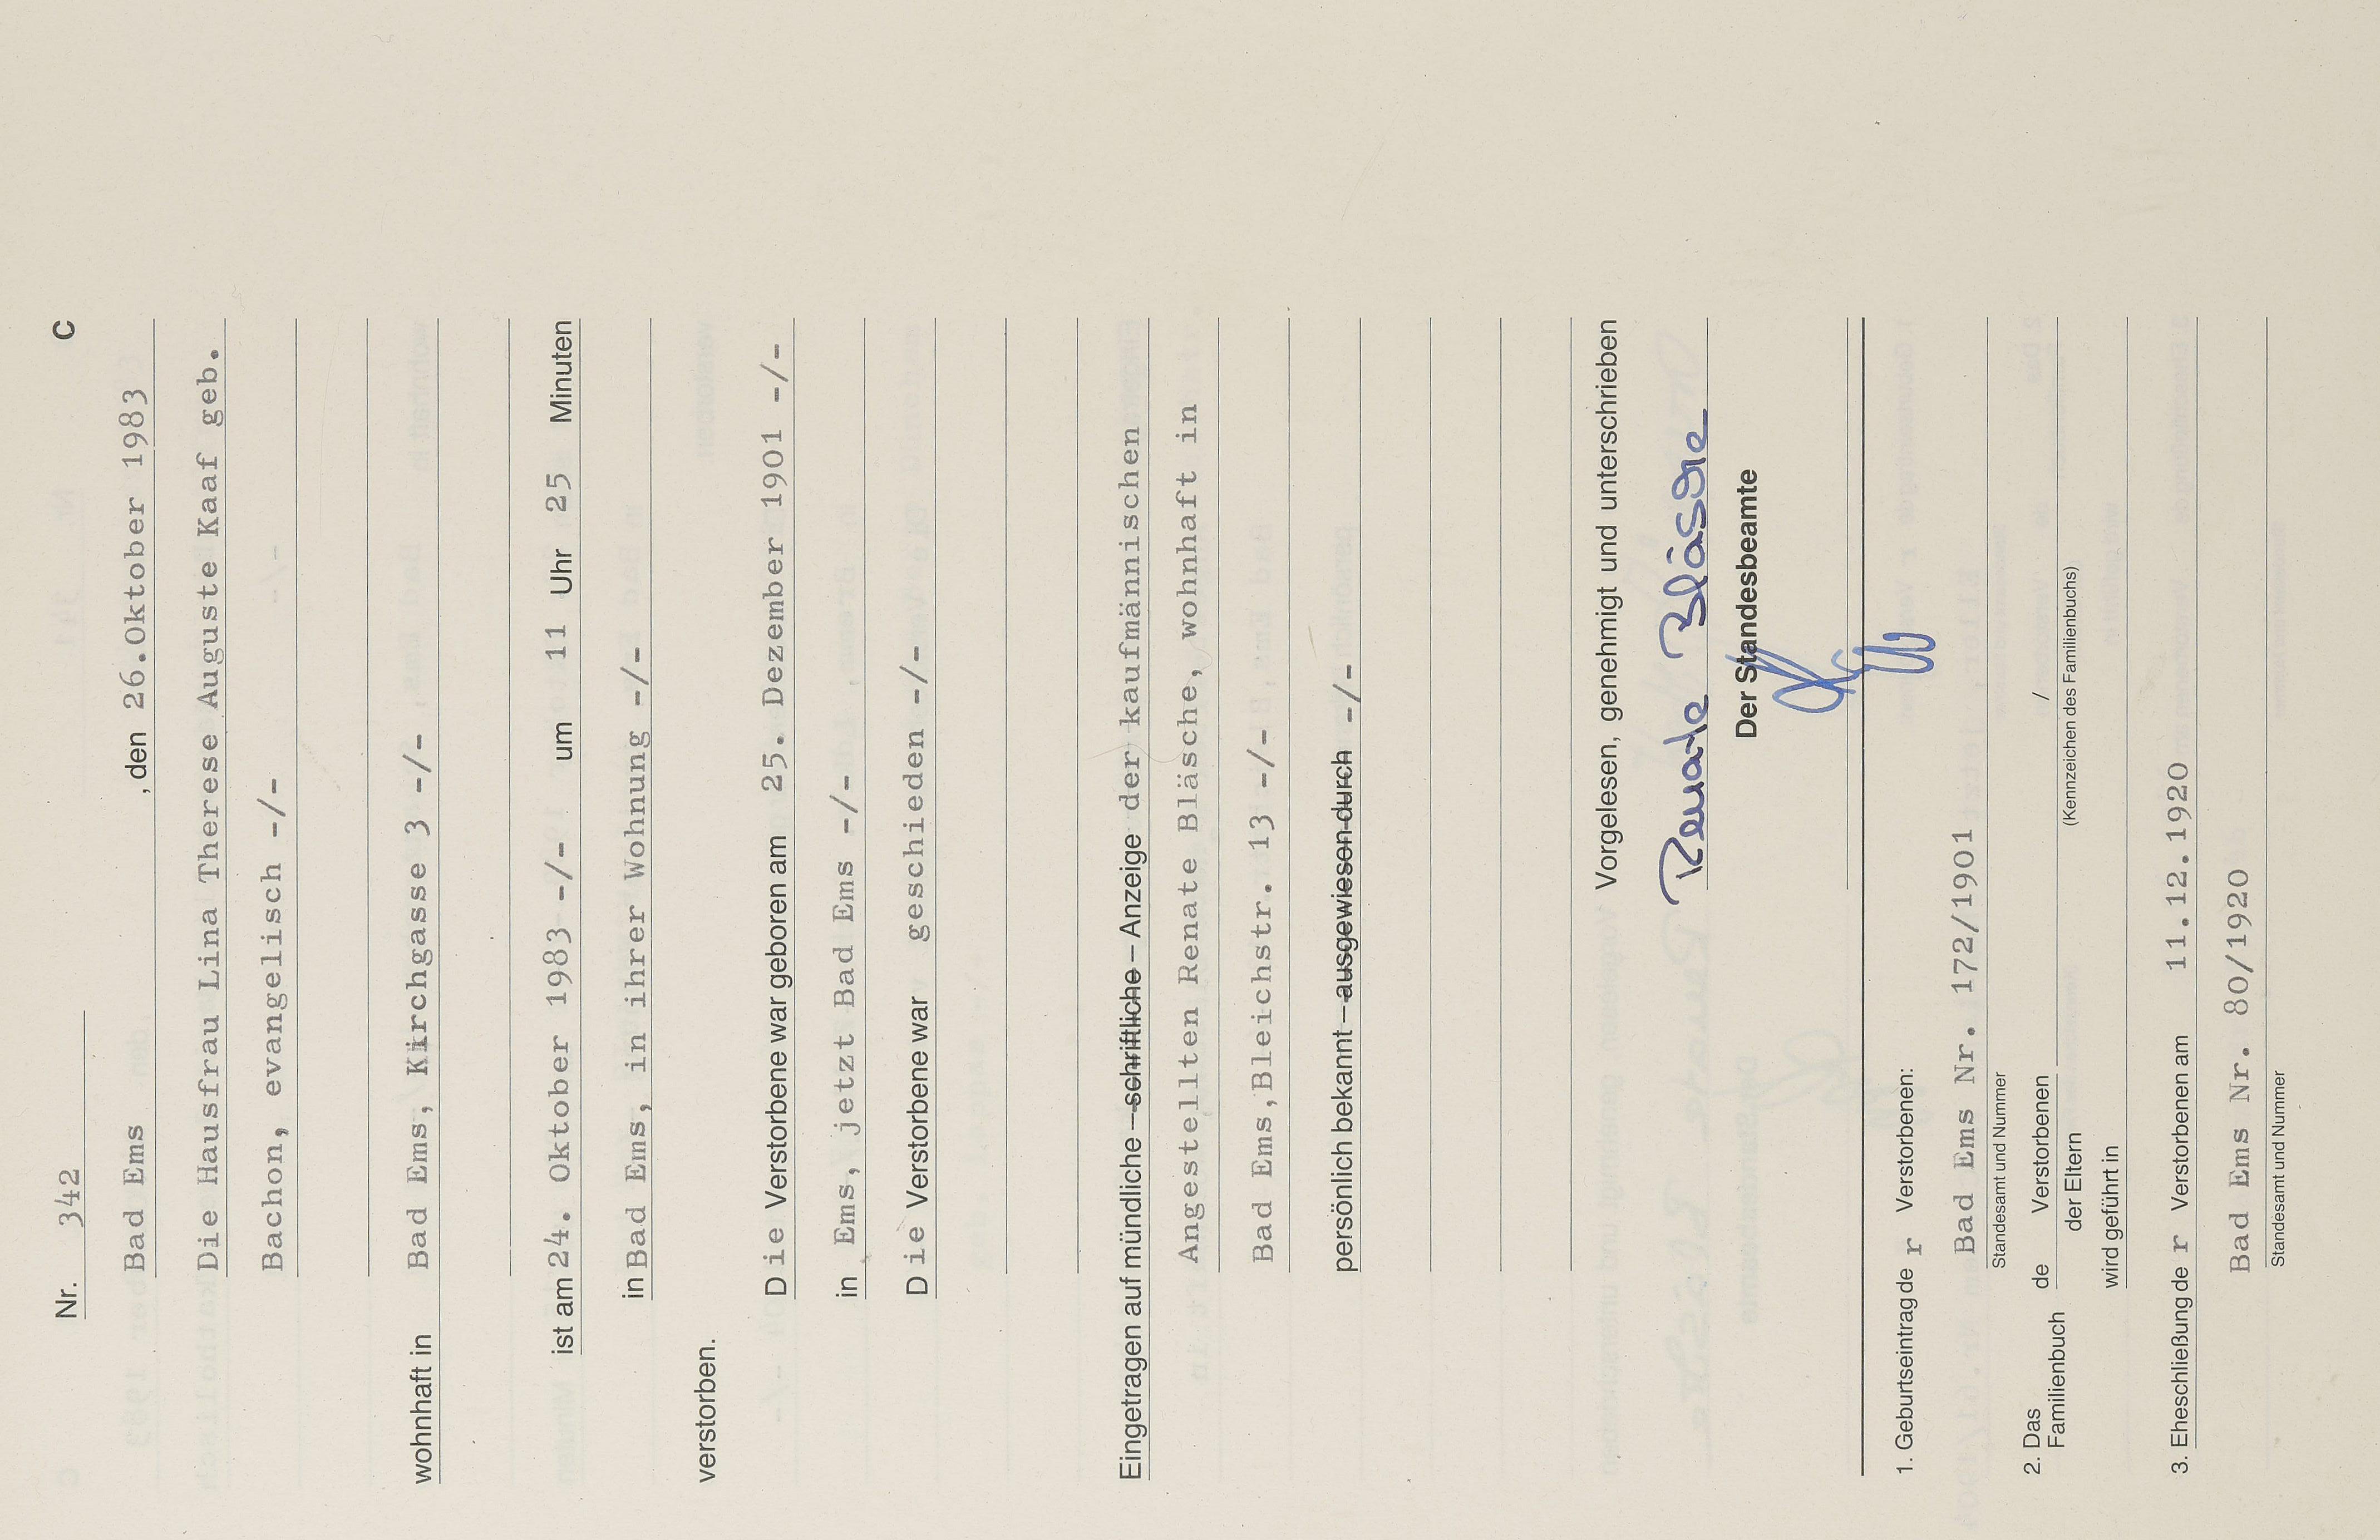 Nr. 342 C
Bad Ems , den 26.Oktober 1983
Die Hausfrau Lina Therese Auguste Kaaf geb.
Bachon, evangelisch -/-
wohnhaft in Bad Ems, Kirchgasse 3 -/-
ist am 24. Oktober 1983 -/- um 11 Uhr 25 Minuten
in Bad Ems, in ihrer Wohnung -/-
verstorben.
Die Verstorbene war geboren am 25. Dezember 1901 -/-
in Ems, jetzt Bad Ems -/-
Die Verstorbene war geschieden -/-
Eingetragen auf mündliche – schriftliche – Anzeige der kaufmännischen
Angestellten Renate Bläsche, wohnhaft in
Bad Ems,Bleichstr. 13 -/-
persönlich bekannt – ausgewiesen durch -/-
Vorgelesen, genehmigt und unterschrieben
Renate Bläsche
Der Standesbeamte
1. Geburtseintrag de r Verstorbenen:
Bad Ems Nr. 172/1901
Standesamt und Nummer
2. Das Familienbuch de Verstorbenen /
der Eltern (Kennzeichen des Familienbuchs)
wird geführt in
3. Eheschließung de r Verstorbenen am 11.12.1920
Bad Ems Nr. 80/1920
Standesamt und Nummer